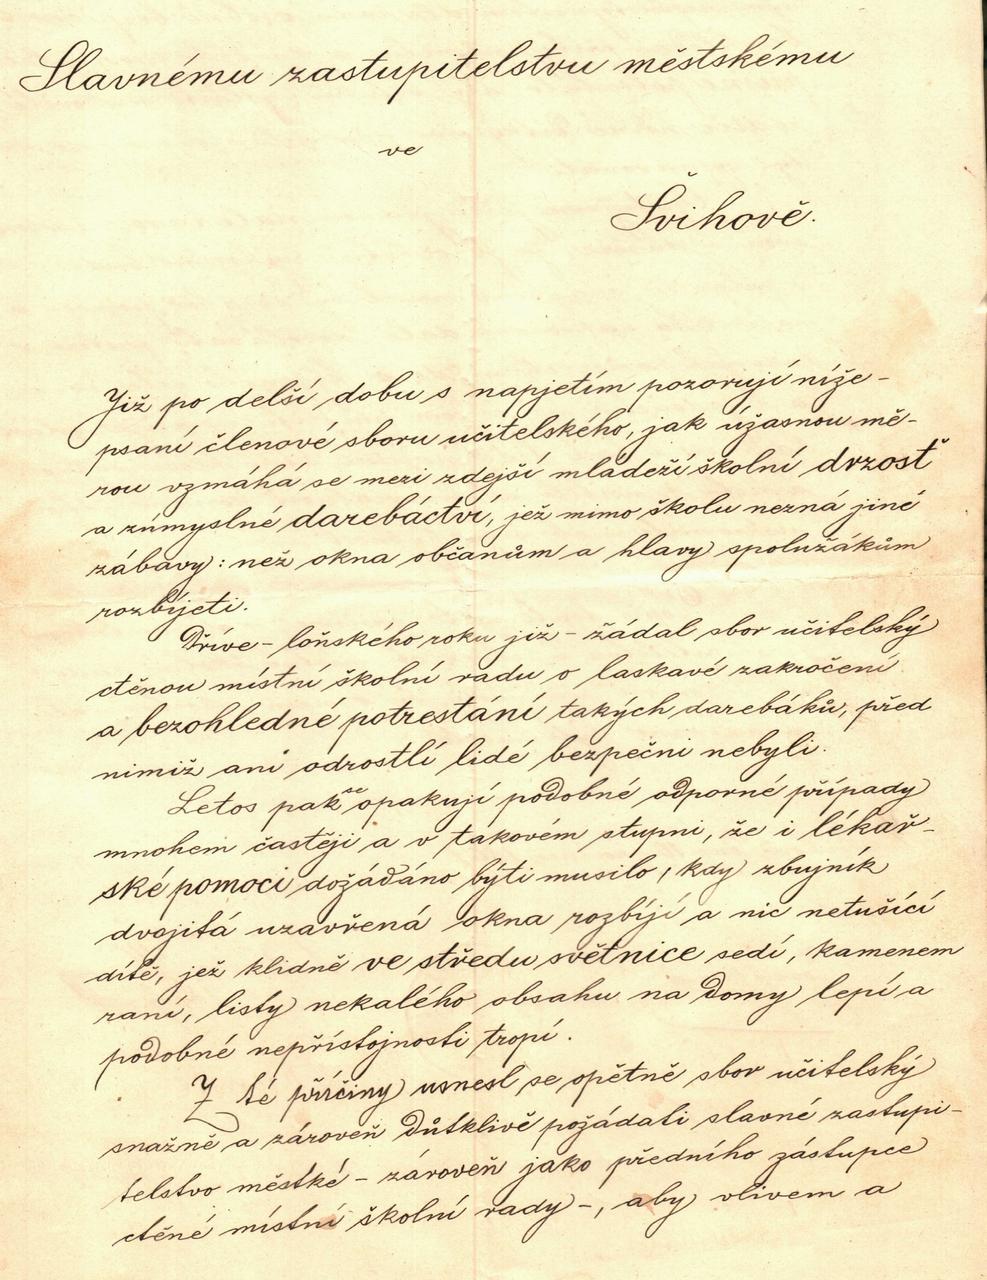 Slavnému zastupitelstvu městskému
ve
Švihově.
Již po delší dobu s napjetím pozorují níže-
psaní členové sboru učitelského, jak úžasnou mě-
rou vzmáhá se mezi zdejší mládeží školní drzost
a zúmyslné darebáctví, jež mimo školu nezná jiné
zábavy: než okna občanům a hlavy spolužákům
rozbíjeti.
Dříve - loňského roku již - žádal sbor učitelský
ctěnou místní školní radu o laskavé zakročení
a bezohledné potrestání takých darebáků, před
nimiž ani odrostlí lidé bezpečni nebyli.
Letos pak se opakují podobné odporné případy
mnohem častěji a v takovém stupni, že i lékař-
ské pomoci dožádáno býti musilo, kdy zbujník
dvojitá uzavřená okna rozbíjí a nic netušící
dítě, jež klidně ve středu světnice sedí, kamenem
raní, listy nekalého obsahu na domy lepí a
podobné nepřístojnosti tropí.
Z té příčiny usnesl se opětně sbor učitelský
snažně a zároveň důtklivě požádati slavné zastupi-
telstvo městké - zároveň jako předního zástupce
ctěné místní školní rady -, aby vlivem a